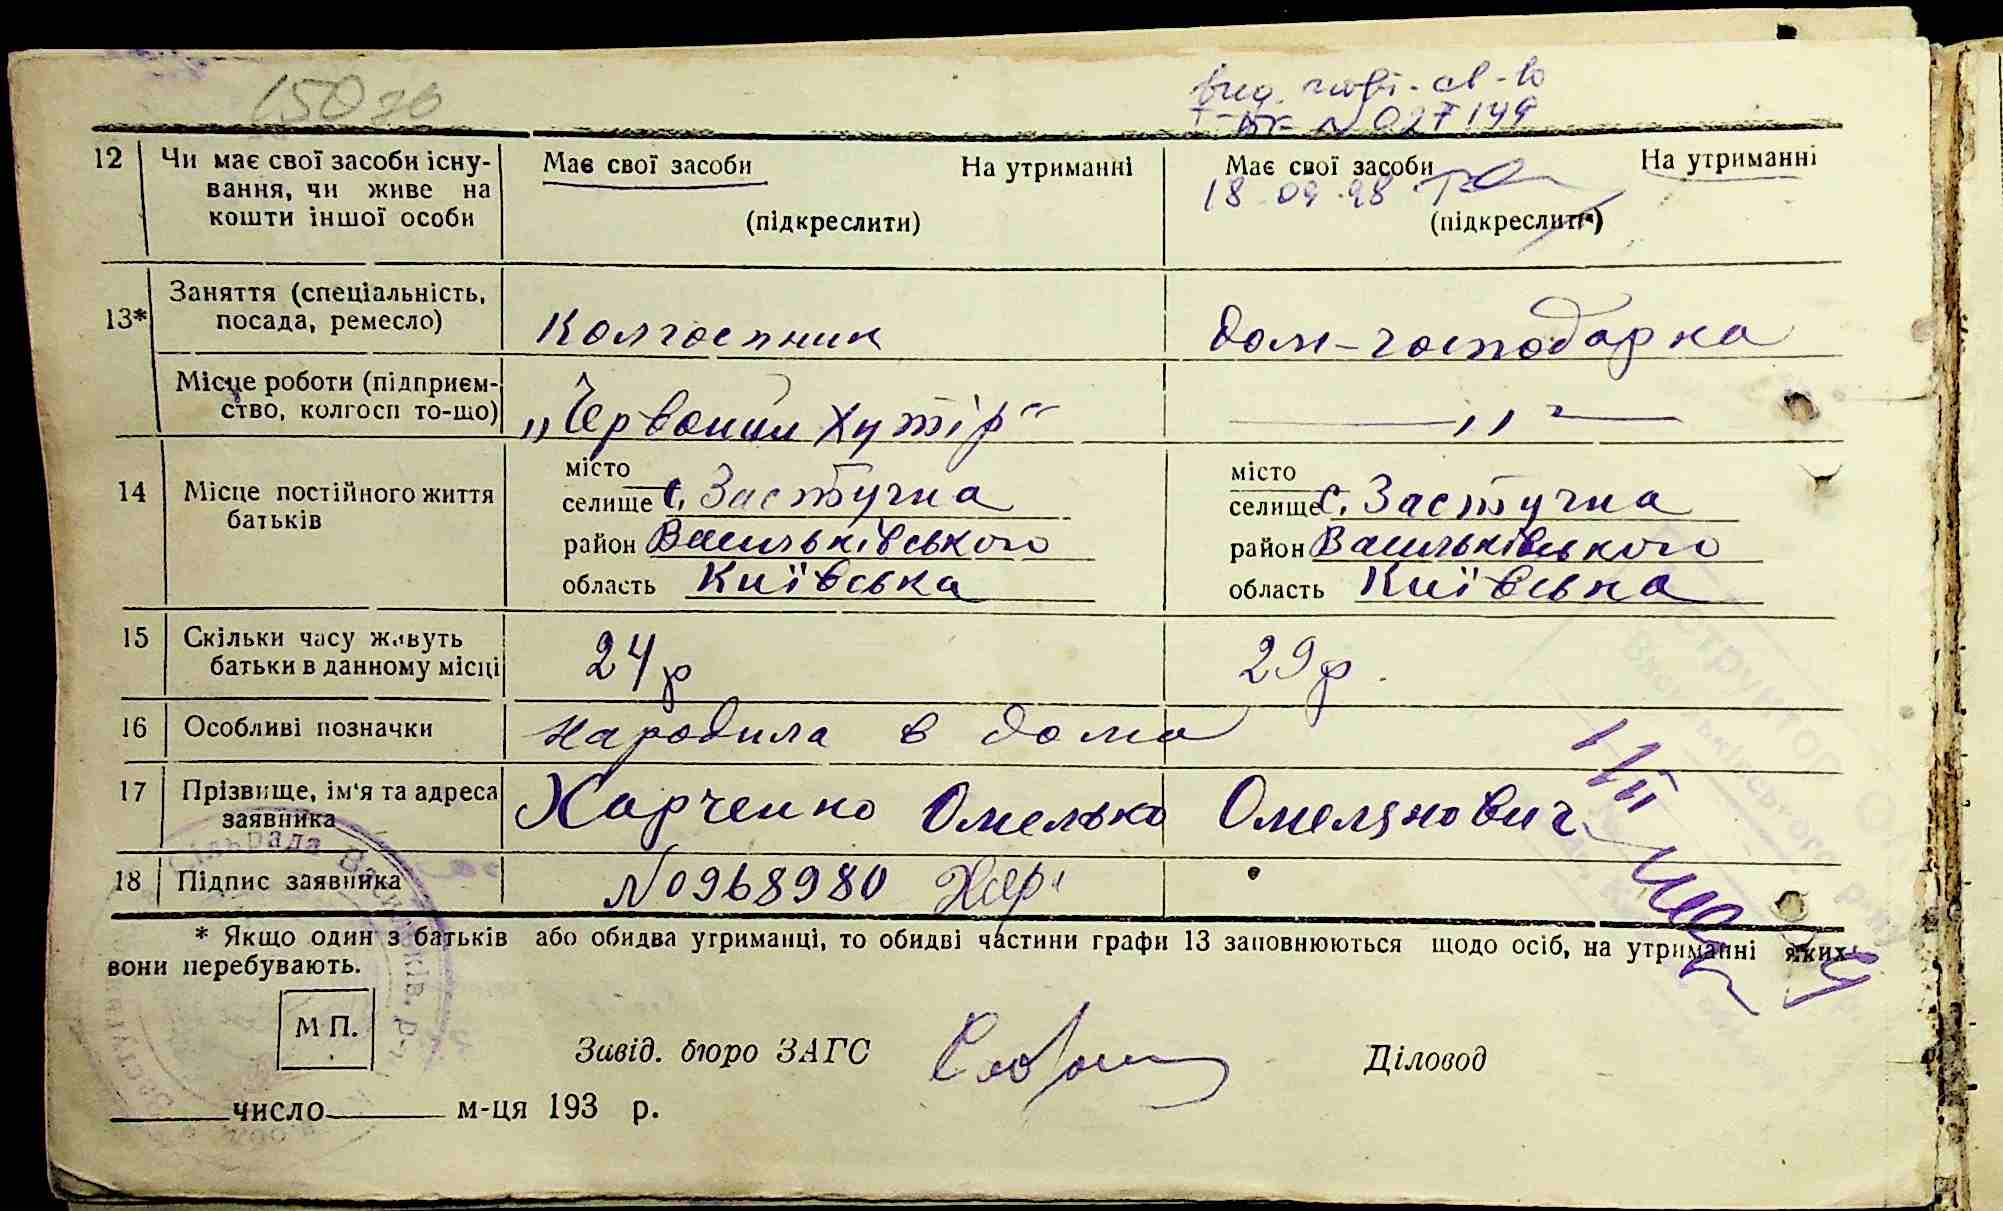 150
№ 027149
12 Чи має свої засоби існу- Має свої засоби На утриманні Має свої засоби На утриманні
вання, чи живе на 18.09.98
кошти іншої особи (підкреслити) (підкреслити)
13* Заняття (спеціальність,
посада, ремесло) Колгоспник Дом-господарка
Місце роботи (підприєм-
ство, колгосп то-що) „Червоний Хутір" — „ —
14 Місце постійного життя місто місто
батьків селище с. Застугна селище с. Застугна
район Васильківського район Васильківського
область Київська область Київська
15 Скільки часу живуть
батьки в данному місці 24 р 29 р.
16 Особливі позначки народила в дома
17 Прізвище, ім'я та адреса
заявника Харченко Омелько Омелянович
18 Підпис заявника № 0968980 Хар
* Якщо один з батьків або обидва утриманці, то обидві частини графи 13 заповнюються щодо осіб, на утриманні яких
вони перебувають.
М П.
Завід. бюро ЗАГС Діловод
число м-ця 193 р.
Сільрада Васильків. р-